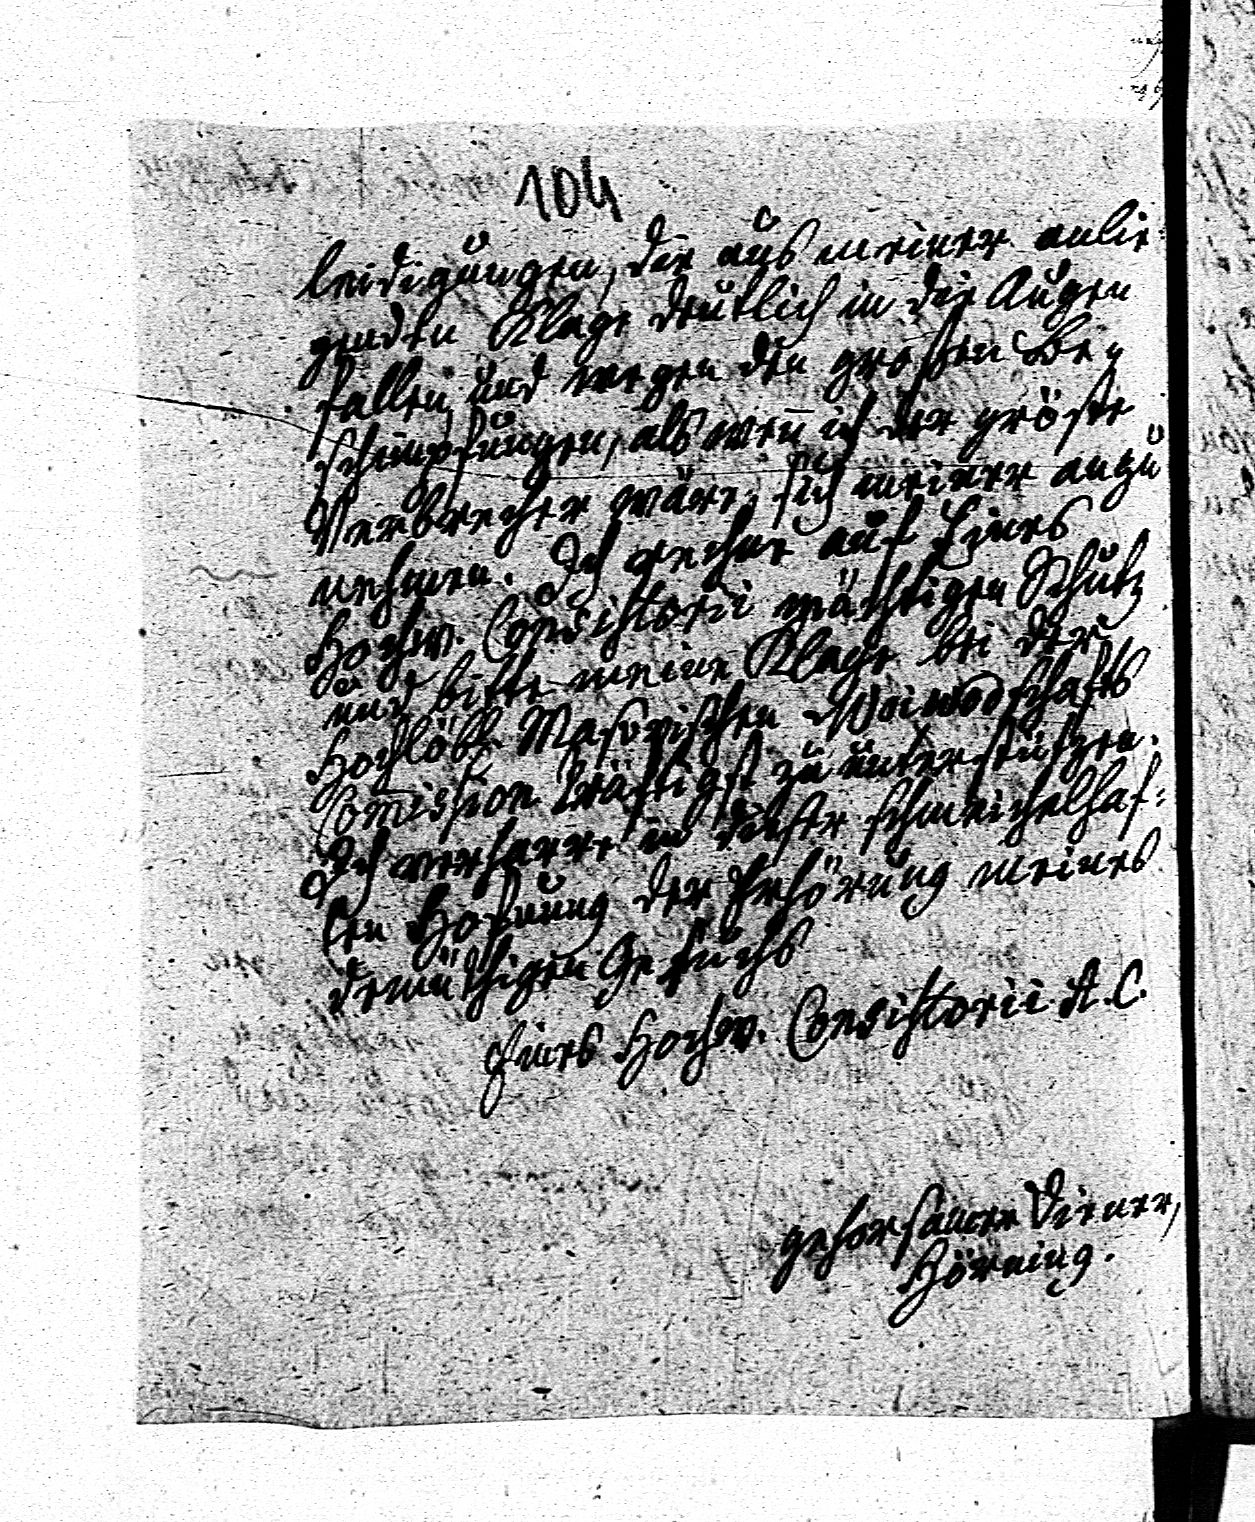 104
leidigungen, die aus meiner anlie
genden Klage deutlich in die Augen
fallen, und wegen den großen Be¬
schimpfungen, als wen̄ ich der gröste
Verbrecher wäre, sich meiner anzu
nehmen. Ich rechne auf Eines
Hochw. Consistorii mächtigen Schutz
und bitte meine Klage bei der
Hochlöbl. Masovischen Woiwodschafts
Com̄ission kräftigst zu unterstützen.
Ich verharre in dieser schmeichelhaf:
ten Hofnung der Erhörung meines
demüthigen Gesuchs
Eines Hochw. Consistorii A. C.
gehorsamer Diener,
Hörning.